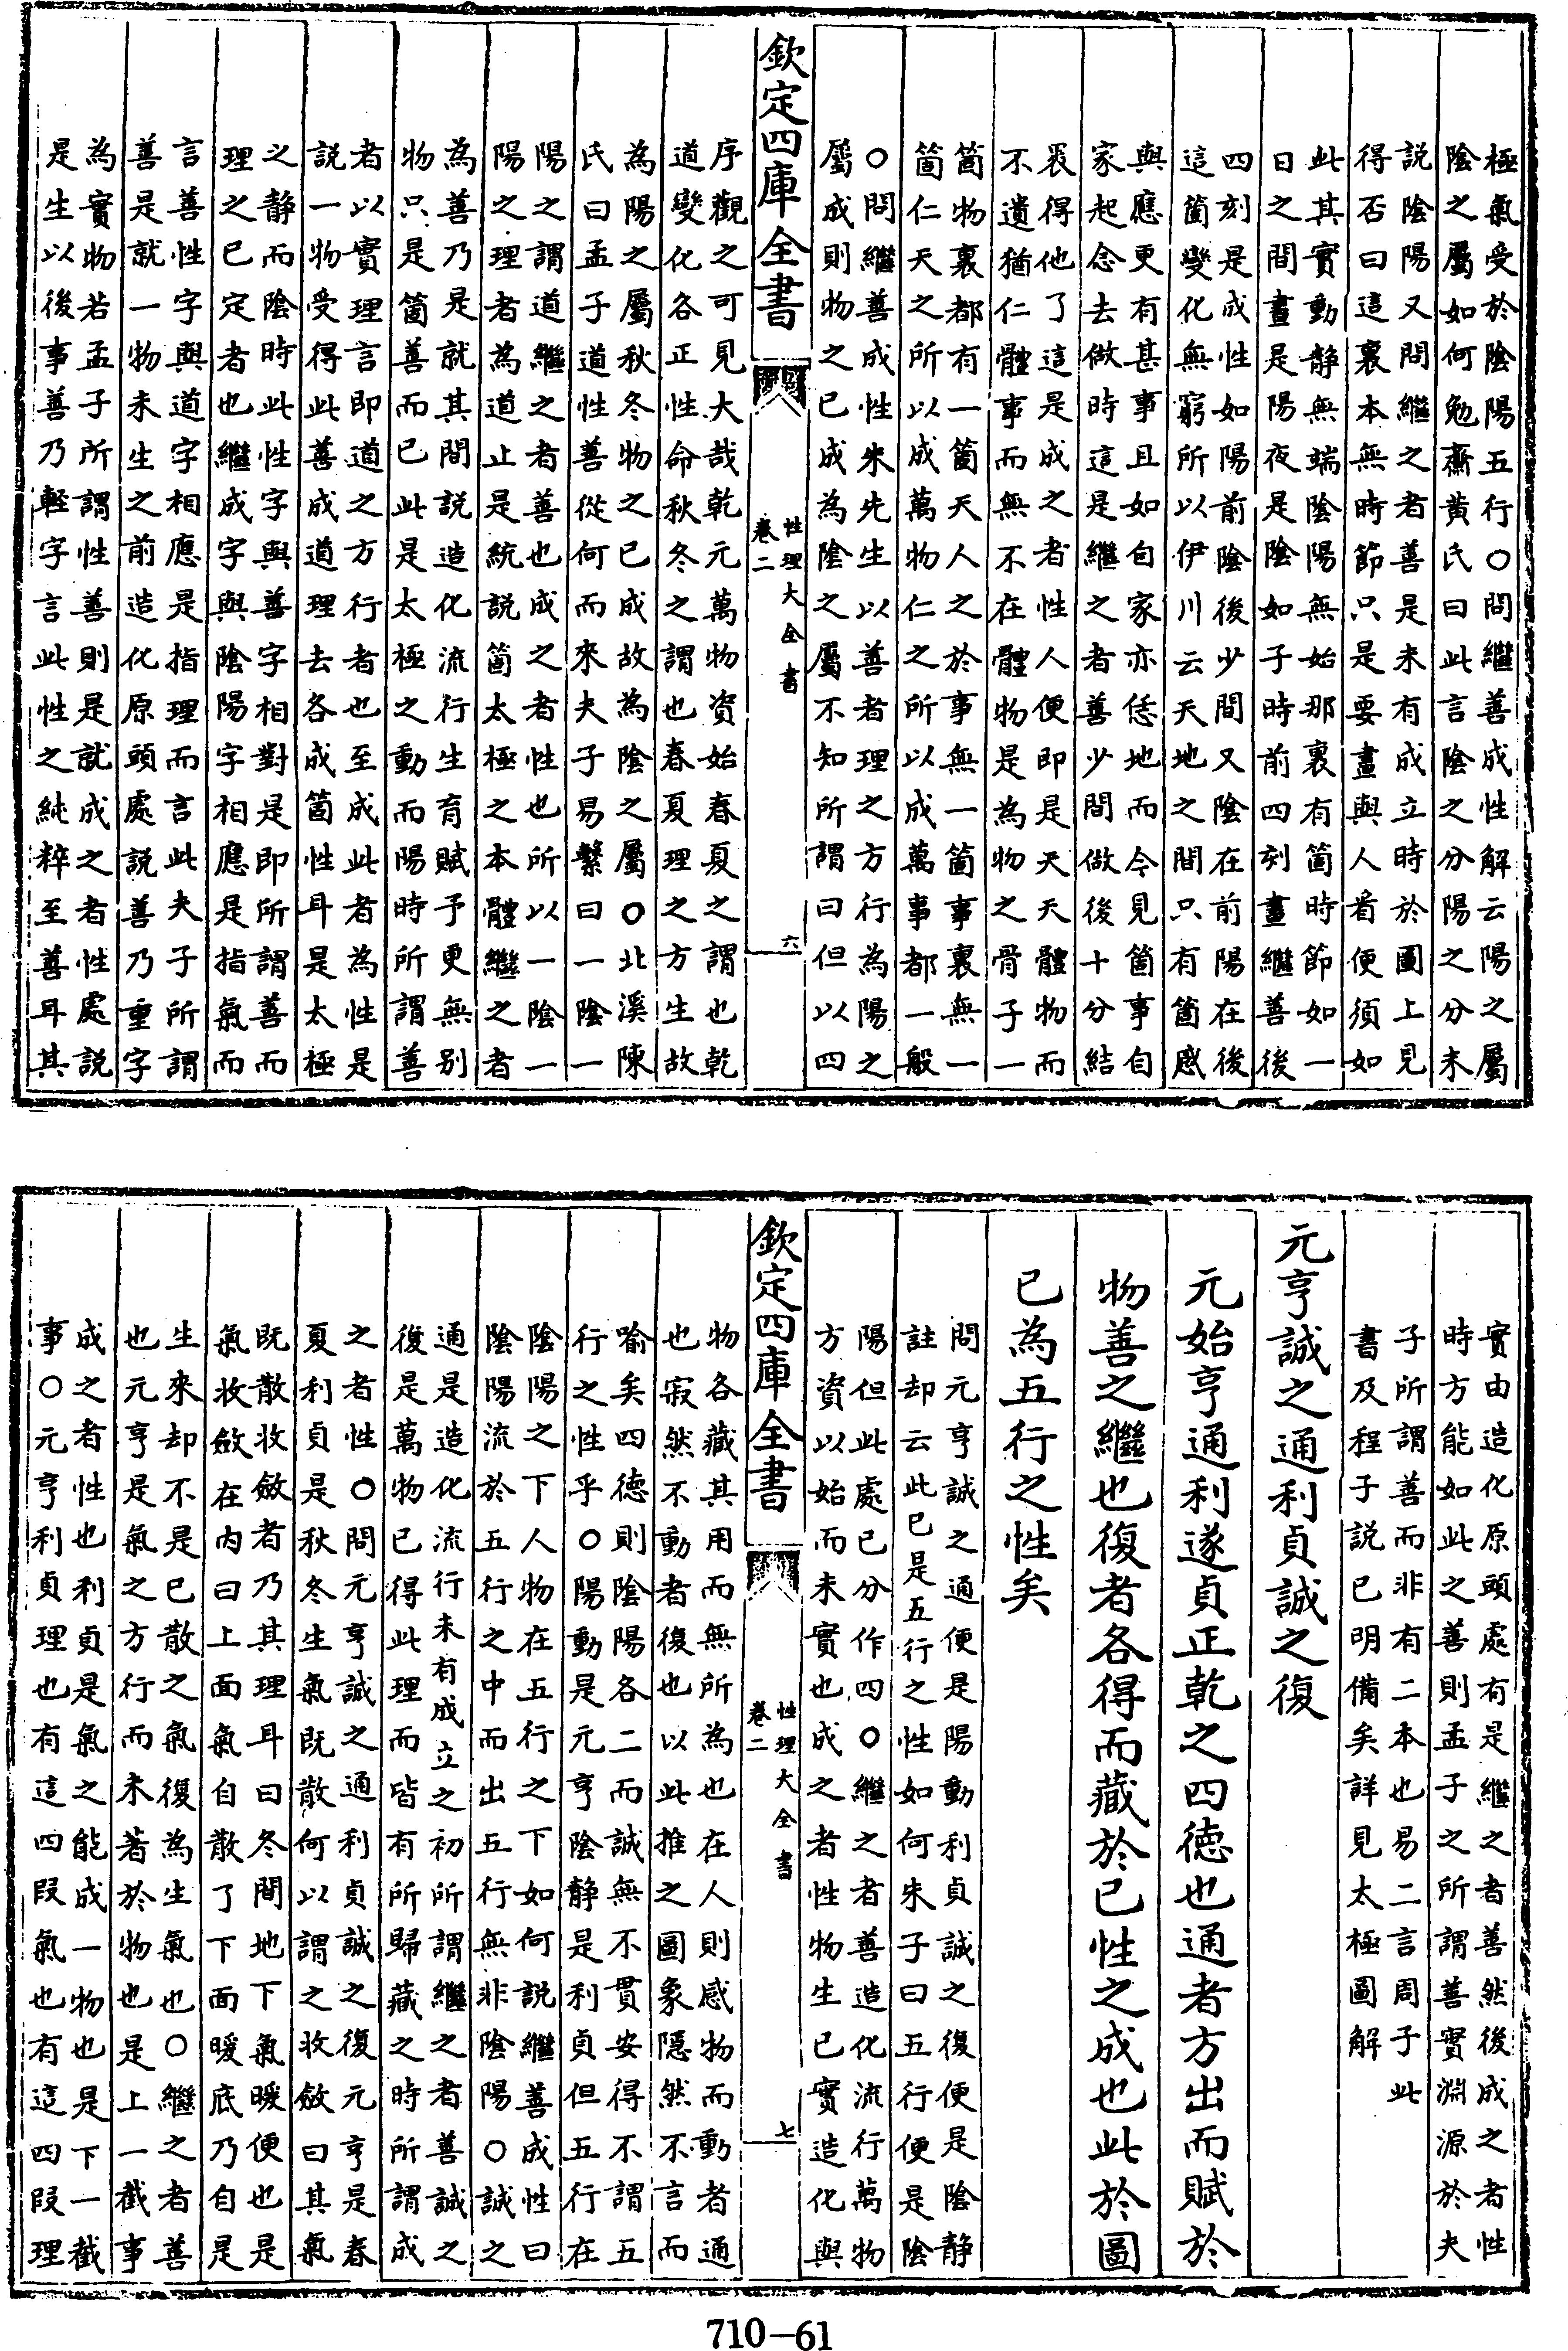 極氣受於陰陽五行〇問繼善成性解云陽之屬
陰之屬如何勉齋黃氏曰此言陰之分陽之分未
說陰陽又問繼之者善是未有成立時於圖上見
得否曰這裏本無時節只是要畫與人看便須如
此其實動静無端陰陽無始那裏有箇時節如一
日之間晝是陽夜是陰如子時前四刻晝繼善後
四刻是成性如陽前陰後少間又陰在前陽在後
這箇變化無窮所以伊川云天地之間只有箇感
與應更有甚事且如自家亦恁地而今見箇事自
家起念去做時這是繼之者善少間做後十分結
褁得他了這是成之者性人便即是天天體物而
不遺猶仁體事而無不在體物是為物之骨子一
箇物裏都有一箇天人之於事無一箇事裏無一
箇仁天之所以成萬物仁之所以成萬事都一般
〇問繼善成性朱先生以善者理之方行為陽之
屬成則物之已成為陰之屬不知所謂曰但以四
欽定四庫全書
性理大全書
卷二
六
序觀之可見大哉乾元萬物資始春夏之謂也乾
道變化各正性命秋冬之謂也春夏理之方生故
為陽之屬秋冬物之已成故為陰之屬〇北溪陳
氏曰孟子道性善從何而來夫子易繫曰一陰一
陽之謂道繼之者善也成之者性也所以一陰一
陽之理者為道止是統說箇太極之本體繼之者
為善乃是就其間説造化流行生育賦予更無别
物只是箇善而已此是太極之動而陽時所謂善
者以實理言即道之方行者也至成此者為性是
説一物受得此善成道理去各成箇性耳是太極
之静而陰時此性字與善字相對是即所謂善而
理之已定者也繼成字與陰陽字相應是指氣而
言善性字與道字相應是指理而言此夫子所謂
善是就一物未生之前造化原頭處説善乃重字
為實物若孟子所謂性善則是就成之者性處説
是生以後事善乃輕字言此性之純粹至善耳其
實由造化原頭處有是繼之者善然後成之者性
時方能如此之善則孟子之所謂善實淵源於夫
子所謂善而非有二本也易二言周子此
書及程子説已明備矣詳見太極圖解
元亨誠之通利貞誠之復
元始亨通利遂貞正乾之四徳也通者方出而賦於
物善之繼也復者各得而藏於已性之成也此於圖
已為五行之性矣
問元亨誠之通便是陽動利貞誠之復便是陰静
註却云此已是五行之性如何朱子曰五行便是陰
陽但此處已分作四〇繼之者善造化流行萬物
方資以始而未實也成之者性物生已實造化與
欽定四庫全書
性理大全書
卷二
七
物各藏其用而無所為也在人則感物而動者通
也寂然不動者復也以此推之圖象隱然不言而
喻矣四徳則陰陽各二而誠無不貫安得不謂五
行之性乎〇陽動是元亨陰静是利貞但五行在
陰陽之下人物在五行之下如何說繼善成性曰
陰陽流於五行之中而出五行無非陰陽〇誠之
通是造化流行未有成立之初所謂繼之者善誠之
復是萬物已得此理而皆有所歸藏之時所謂成
之者性〇問元亨誠之通利貞誠之復元亨是春
夏利貞是秋冬生氣既散何以謂之收斂曰其氣
既散收斂者乃其理耳曰冬間地下氣暖便也是
氣收斂在内曰上面氣自散了下面暖底乃自是
生來却不是已散之氣復為生氣也〇繼之者善
也元亨是氣之方行而未著於物也是上一截事
成之者性也利貞是氣之能成一物也是下一截
事〇元亨利貞理也有這四段氣也有這四段理
710-61